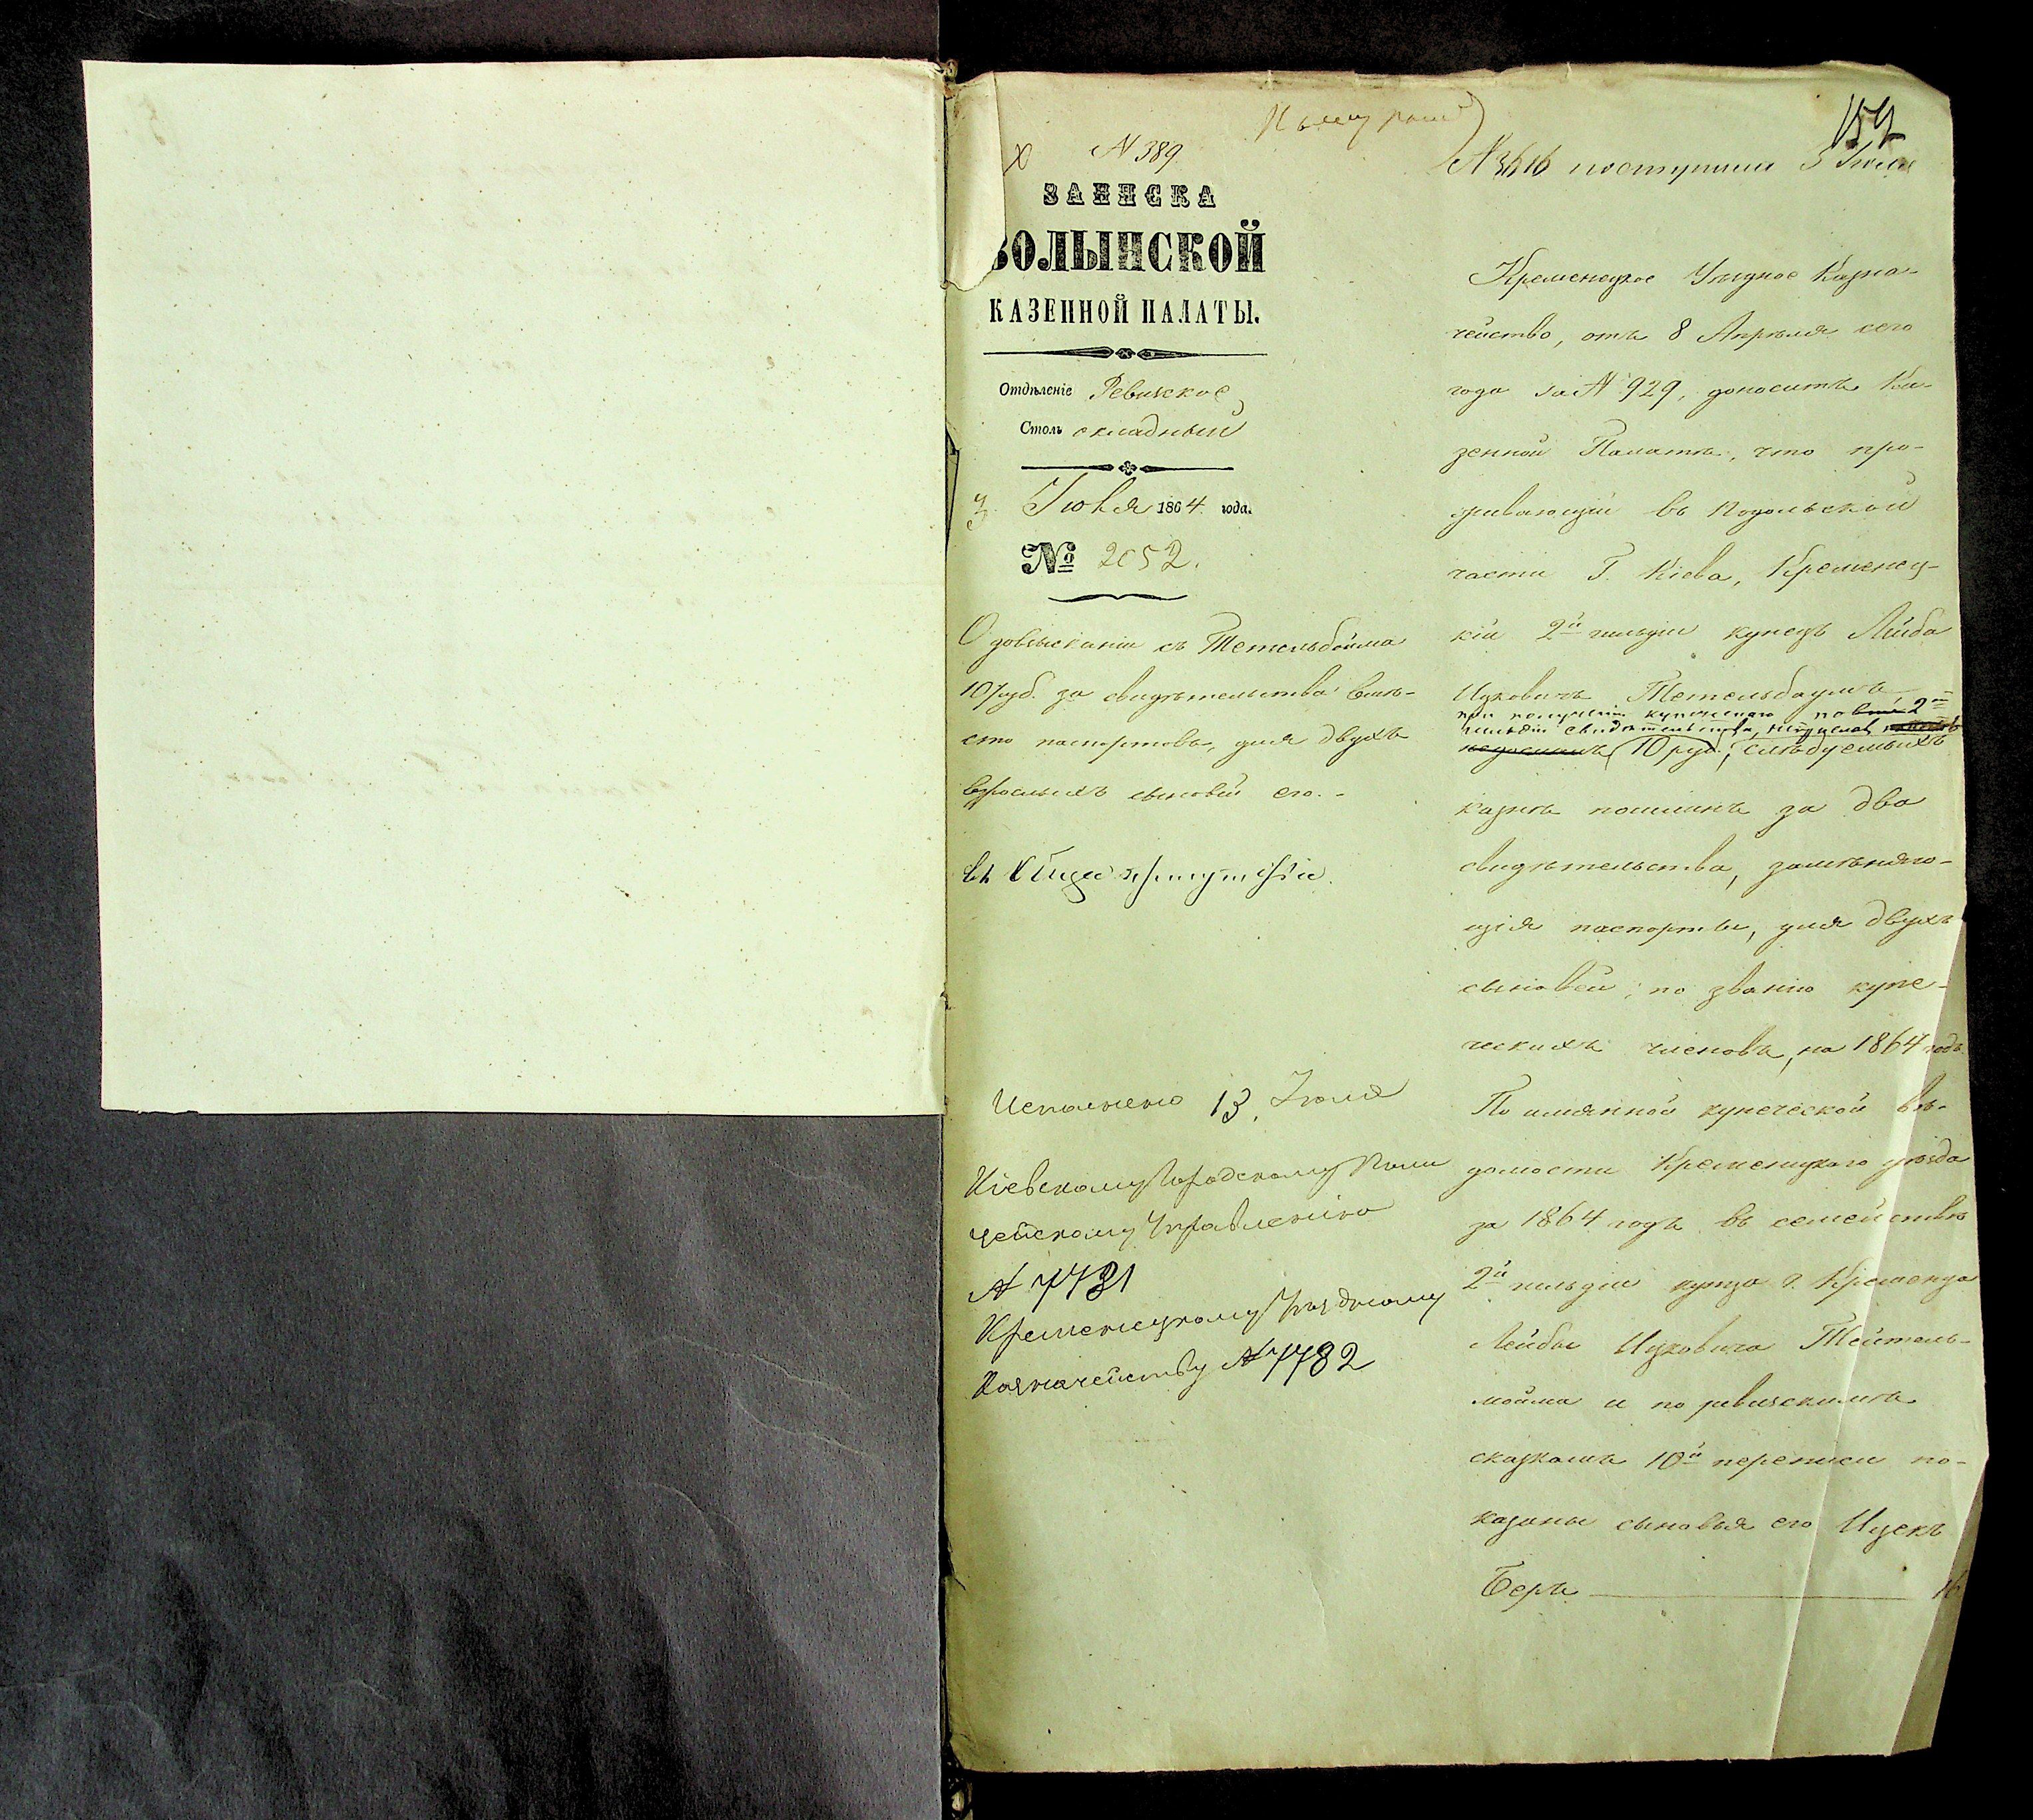 159
№ 389
№ 3616 поступила 3 Іюля
ЗАПИСКА
ВОЛЫНСКОЙ
КАЗЕННОЙ ПАЛАТЫ.
Отдѣленіе Ревизское
Столъ складный
3 Іюля 1864 года.
№ 2052.
О довзысканіи съ Тетельбойма
10 руб. за свидѣтельства вмѣ-
сто паспортовъ, для двухъ
взрослыхъ сыновей его.
Исполнено 13 Іюля
Кіевскому Городскому Поли
цейскому Управленію
№ 7731
Кременецкому Уѣздному
Казначейству № 7732
Кременецкое Уѣздное Казна-
чейство, отъ 8 Апрѣля сего
года за № 929, доноситъ Ка-
зенной Палатѣ, что про-
живающій въ Подольской
части Г. Кіева, Кременец-
кій 2й гильдіи купецъ Лейба
Ицковичъ Тетельбаумъ
при полученіи купеческаго по 2й
гильдіи свидѣтельства,
10 руб., слѣдуемыхъ
казнѣ пошлинъ за два
свидѣтельства, замѣняю-
щія паспорты, для двухъ
сыновей, по званію купе-
ческихъ членовъ, на 1864 годъ.
По имянной купеческой вѣ-
домости Кременецкаго уѣзда
за 1864 годъ въ семействѣ
2й гильдіи купца г. Кременца
Лейбы Ицковича Тейтель-
мойма и по ревизскимъ
сказкамъ 10й переписи по-
казаны сыновья его Ицекъ
Беръ 16